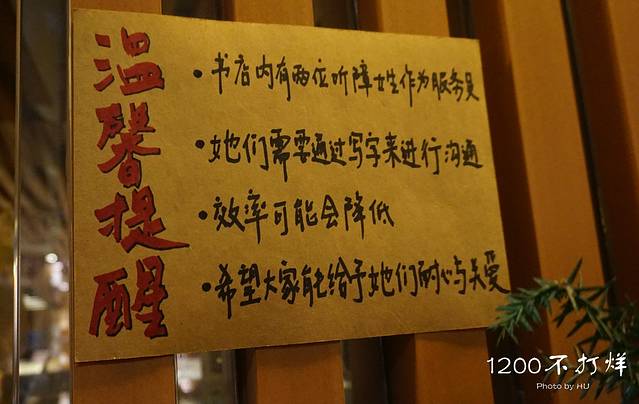 温馨提醒
·书店内有两位听障女生作为服务员
·她们需要通过写字来进行沟通
·效率可能会降低
·希望大家能给予她们耐心与关爱
1200不打烊
Photo by HU